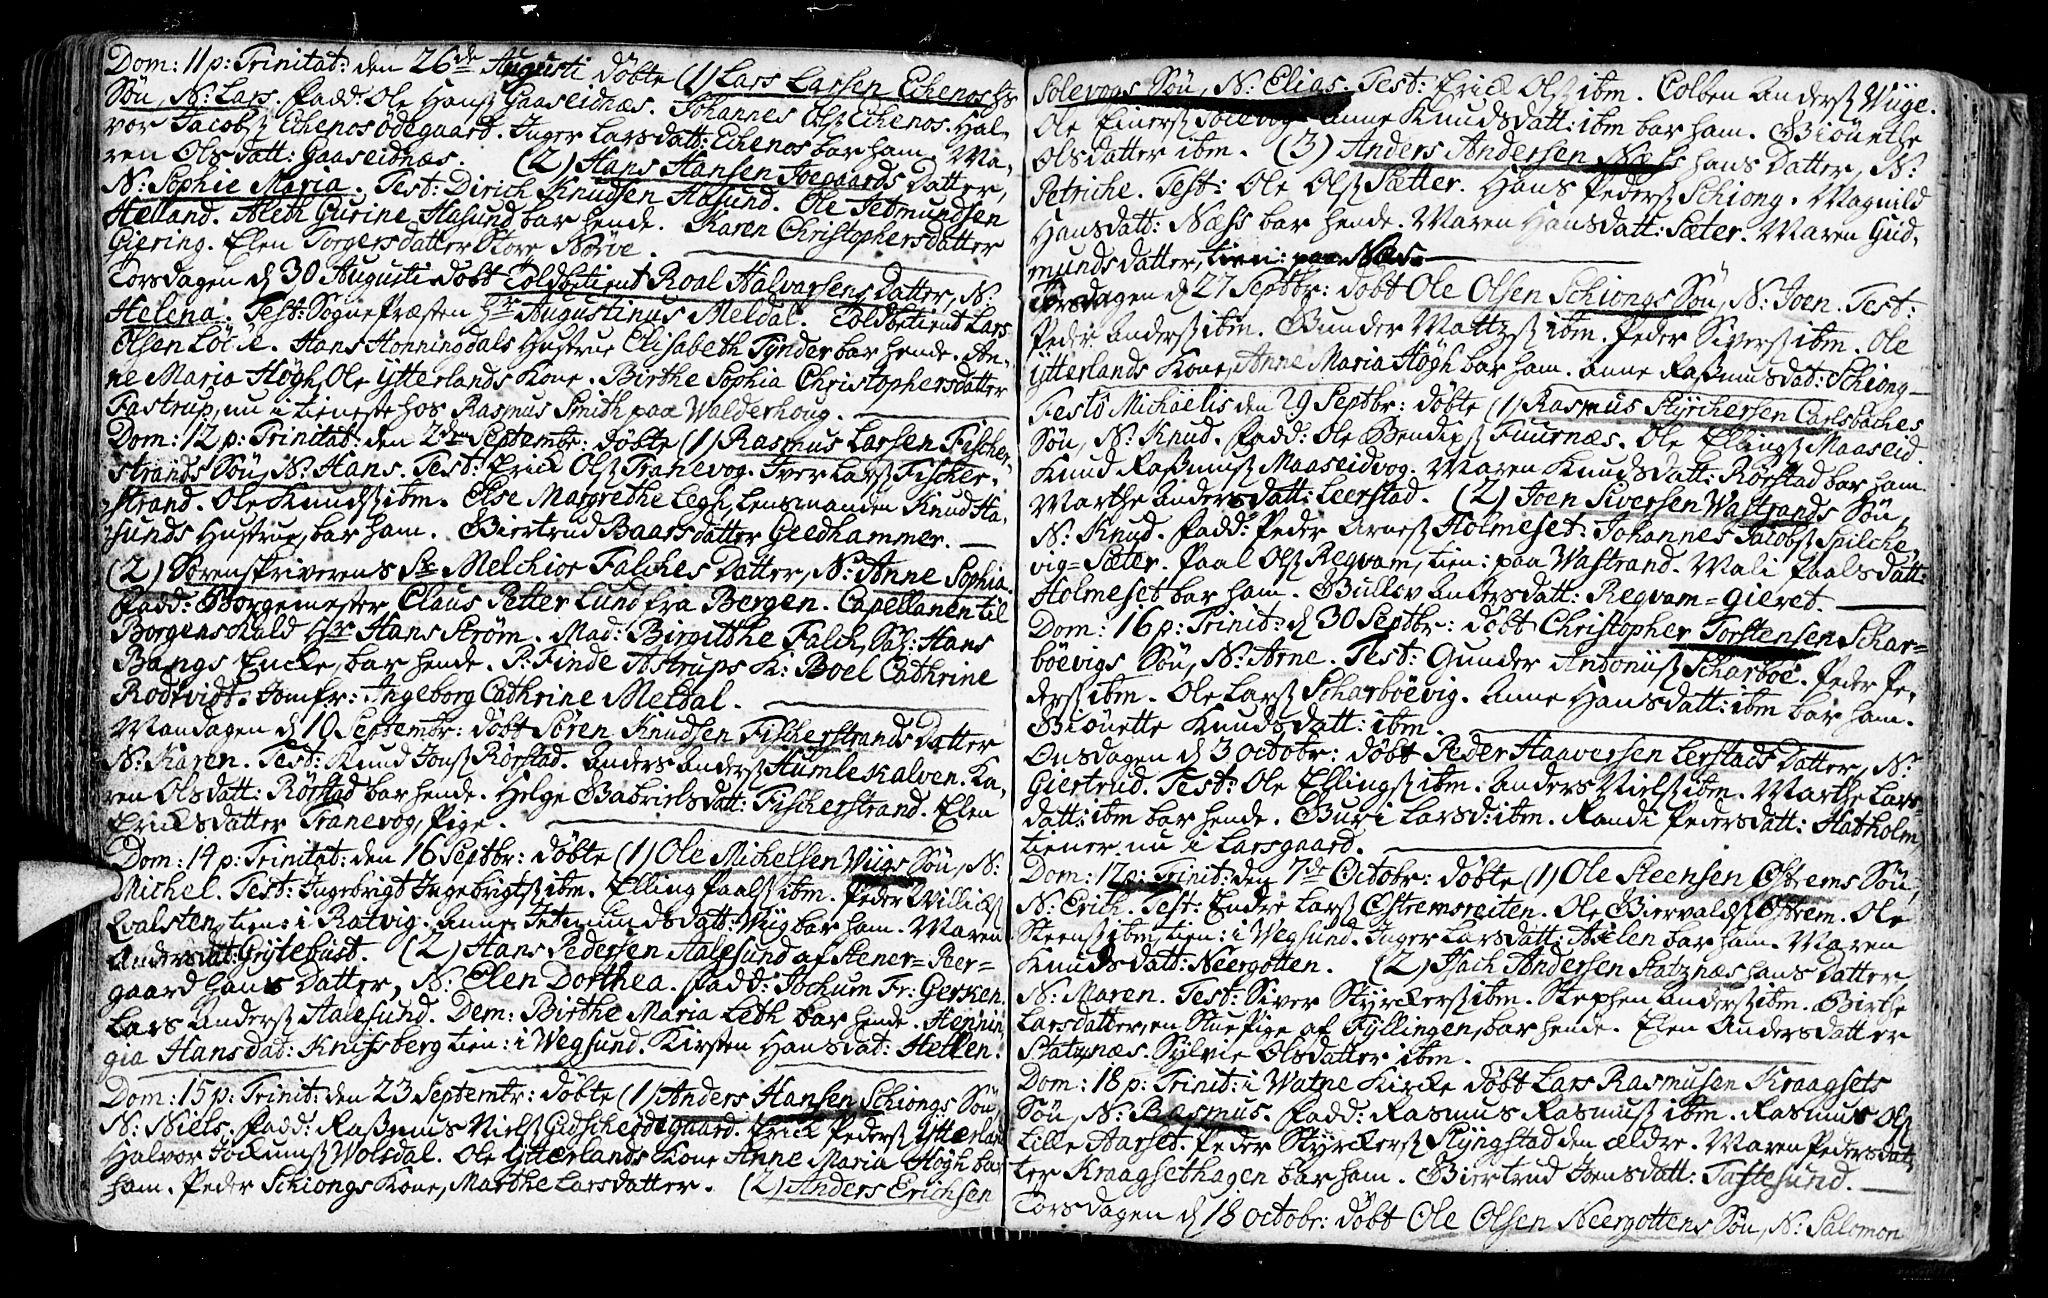 Dom: 11 p: Trinitat: den 26de Augusti döbte (1) Lars Larsen Echenos hs
Sön, N: Lars. Fadd: Ole Hanss Gaaseidnæs. Johannes Olss Echenos. Hal-
vor Jacobss Echenos ödegaard. Inger Larsdatt: Echenos bar ham. Ma-
ren Olsdatt: Gaaseidnæs. (2) Hans Hansen Joegaards Datter,
N: Sophie Maria. Test: Dirich Knudsen Hasund. Ole Jetmundsen
Helland. Aleth Gurine Hasund bar hende. Karen Christophersdatter
Giering. Elen Torgersdatter Store Nörve.
Torsdagen d 30 Augusti döbt Toldbetient Roal Halvarsens Datter, N:
Helena. Test: SognePræsten Hr Augustinus Meldal. Toldbetient Lars
Olsen Löche. Hans Honningdals Hustrue Elisabeth Tynder bar hende. An-
ne Maria Högh, Ole Ytterlands Kone. Birthe Sophia Christophersdatter
Fastrup, nu i tieneste hos Rasmus Smith paa Walderhoug.
Dom: 12 p: Trinitat: den 2den Septembr: döbte (1) Rasmus Larsen Fischer-
strands Sön, N: Hans. Test: Erick Olss Tranevog. Iver Larss Fischer-
strand. Ole Knudss ibm. Else Margrethe Legh, Lensmanden Knud Ha-
sunds Hustrue, bar ham. Giertrud Baarsdatter Geedhammer.
(2) Sorenskriverens Sr Melchior Falches Datter, N: Anne Sophia.
Fadd: Borgemester Claus Petter Lund fra Bergen. Capellanen til
Borgens Kald Hr Hans Ström. Mad: Birgitthe Falch, Sal: Hans
Bangs Encke, bar hende. P: Finde Astrups K: Boel Cathrine
Rodtvidt. Jomfr: Ingeborg Cathrine Meldal.
Mandagen d 10 Septembr: döbt Sören Knudsen Fischerstrands Datter
N: Karen. Test: Knud Jonss Rörstad. Anders Anderss Humlekalven. Ka-
ren Olsdatt: Rörstad bar hende. Helge Gabrielsdatt: Fischerstrand. Elen
Ericksdatter Tranevog, Pige.
Dom: 14 p: Trinitat: den 16 Septbr: döbte (1) Ole Michelsen Wiigs Sön, N:
Michel. Test: Ingebrigt Ingebrigtss ibm. Elling Paalss ibm. Peder Willickss
Qvalsten, tien: i Ratvig. Anne Jetmundsdatt: Wiig bar ham. Maren
Andersdat: Grytebust. (2) Hans Pedersen Aalesund af Stener-Peer-
gaard hans Datter, N: Elen Dorthea. Fadd: Jochum Fr: Gerken.
Lars Anderss Aalesund. Dem: Birthe Maria Leth bar hende. Hennin
gia Hansdat: Knifsberg tien: i Wegsund. Kirsten Hansdat: Hetlen.
Dom: 15 p: Trinit: den 23 Septemtr: döbte (1) Anders Hansen Schiongs Sön,
N: Niels. Fadd: Rassmus Nielss Gidscheödegaard. Erick Pederss Ytterland
Halvor Jockumss Wolsdal. Ole Ytterlands Kone Anne Maria Högh bar
ham. Peder Schiongs Kone, Marthe Larsdatter. (2) Anders Erichsen
Solevogs Sön, N: Elias. Test: Erick Olss ibm. Colben Anderss Wiige.
Ole Einerss Solevog. Anne Knudsdatt: ibm bar ham. Giöunthe
Olsdatter ibm. (3) Anders Andersen Næss hans Datter, N:
Petriche. Test: Ole Olss Sætter. Hans Pederss Schiong. Magnild
Hansdatt: Næss bar hende. Maren Hansdatt: Sæter. Maren Gud-
mundsdatter, tien: paa Næs.
Torsdagen d 27 Septbr: döbt Ole Olsen Schiongs Sön, N: Joen. Test:
Peder Anderss ibm. Gunder Mattzss ibm. Peder Siverss ibm. Ole
Ytterlands Kone, Anne Maria Högh bar ham. Anne Rassmusdat: Schiong
Festo Michaelis den 29 Septbr: döbte (1) Rasmus Styrchersen Carlsbaches
Sön, N: Knud. Fadd: Ole Bendixss Fuurnæs. Ole Ellingss Maaseid.
Knud Rassmuss Maaseidvog. Maren Knudsdatt: Rörstad bar ham.
Marthe Andersdatt: Leerstad. (2) Joen Siversen Wastrands Sön,
N: Knud. Fadd: Peder Arness Holmeset. Johannes Jacobss Spilche-
vig-Sæter. Paal Olss Reqvam, tien: paa Wastrand. Mali Paalsdatt:
Holmeset bar ham. Gullov Andersdatt: Reqvam-gieret.
Dom: 16 p: Trinit: d 30 Septbr: döbt Christopher Torstensen Schar-
böevigs Sön, N: Arne. Test: Gunder Antoniiss Scharböe. Peder Pe-
derss ibm. Ole Larss Scharböevig. Anne Hansdatt: ibm bar ham.
Giönette Knudsdatt: ibm.
Onsdagen d 3 Octobr: döbt Peder Haaversen Lerstads Datter, N:
Giertrud. Test: Ole Ellingss ibm. Anders Nielss ibm. Marthe Lars-
datt: ibm bar hende. Guri Larsd: ibm. Randi Pedersdatt: Hatholm,
tiener nu i Larsgaard.
Dom: 17 p: Trinit: den 7de Octobr: döbte (1) Ole Steensen Østrems Sön,
N: Erich. Test: Endre Larss Østremsreiten. Ole Biervaldss Østrem. Ole
Steenss ibm, tien: i Wegsund. Inger Larsdatt: Aslen bar ham. Maren
Knudsdatt: Neergotten. (2) Isach Andersen Statznæs hans Datter,
N: Maren. Test: Siver Styrckerss ibm. Stephen Anderss ibm. Birthe
Larsdatter, en Stuepige af Fyllingen, bar hende. Elen Andersdatter
Statznæs. Sylvie Olsdatter ibm.
Dom: 18 p: Trinit: i Watne Kircke döbt Lars Rasmusen Kraagsets
Sön, N: Rasmus. Fadd: Rasmus Rasmuss ibm. Rasmus Olss
Lille Aarset. Peder Styrckerss Slyngstad den ældre. Maren Pedersdat
ter Kraagsethagen bar ham. Giertrud Jonsdatt: Taftesund.
Torsdagen d 18 Octobr: döbt Ole Olsen Neergottens Sön, N: Salomon